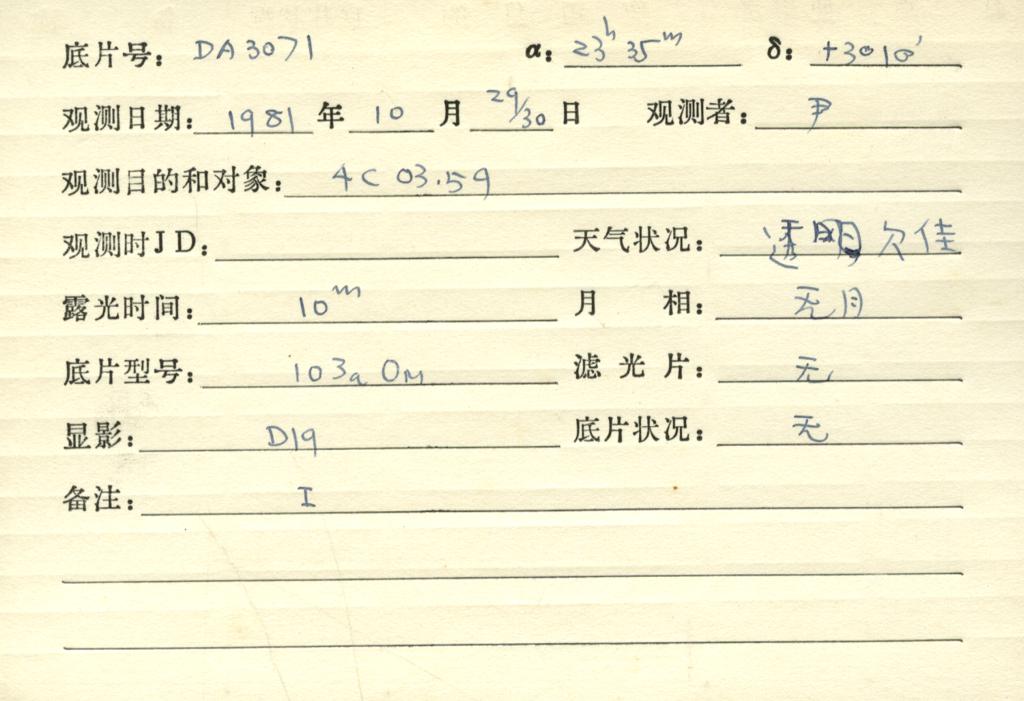 底片号: DA3071 α: 23h 35m δ: +3°10′
观测日期: 1981 年 10 月 29/30 日 观测者: 尹
观测目的和对象: 4C 03.59
观测时JD: 天气状况: 透明欠佳
露光时间: 10m 月 相: 无月
底片型号: 103a Om 滤光片: 无
显影: D19 底片状况: 无
备注: I